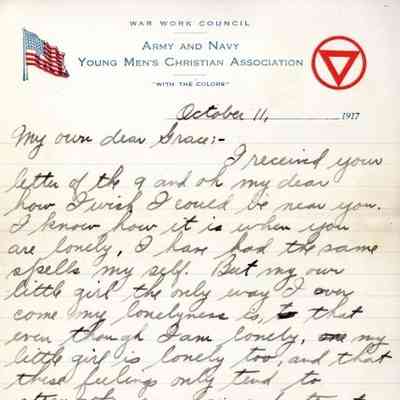 WAR WORK COUNCIL
ARMY AND NAVY
YOUNG MEN'S CHRISTIAN ASSOCIATION
"WITH THE COLORS"
October 11, 1917
My own dear Grace:-
I received your
letter of the 9 and oh my dear
how I wish I could be near you.
I know how it is when you
are lonely, I have had the same
spells my self. But my own
little girl the only way I over
come my lonelyness is, to that
even though I am lonely, my
little girl is lonely too, and that
these feelings only tend to